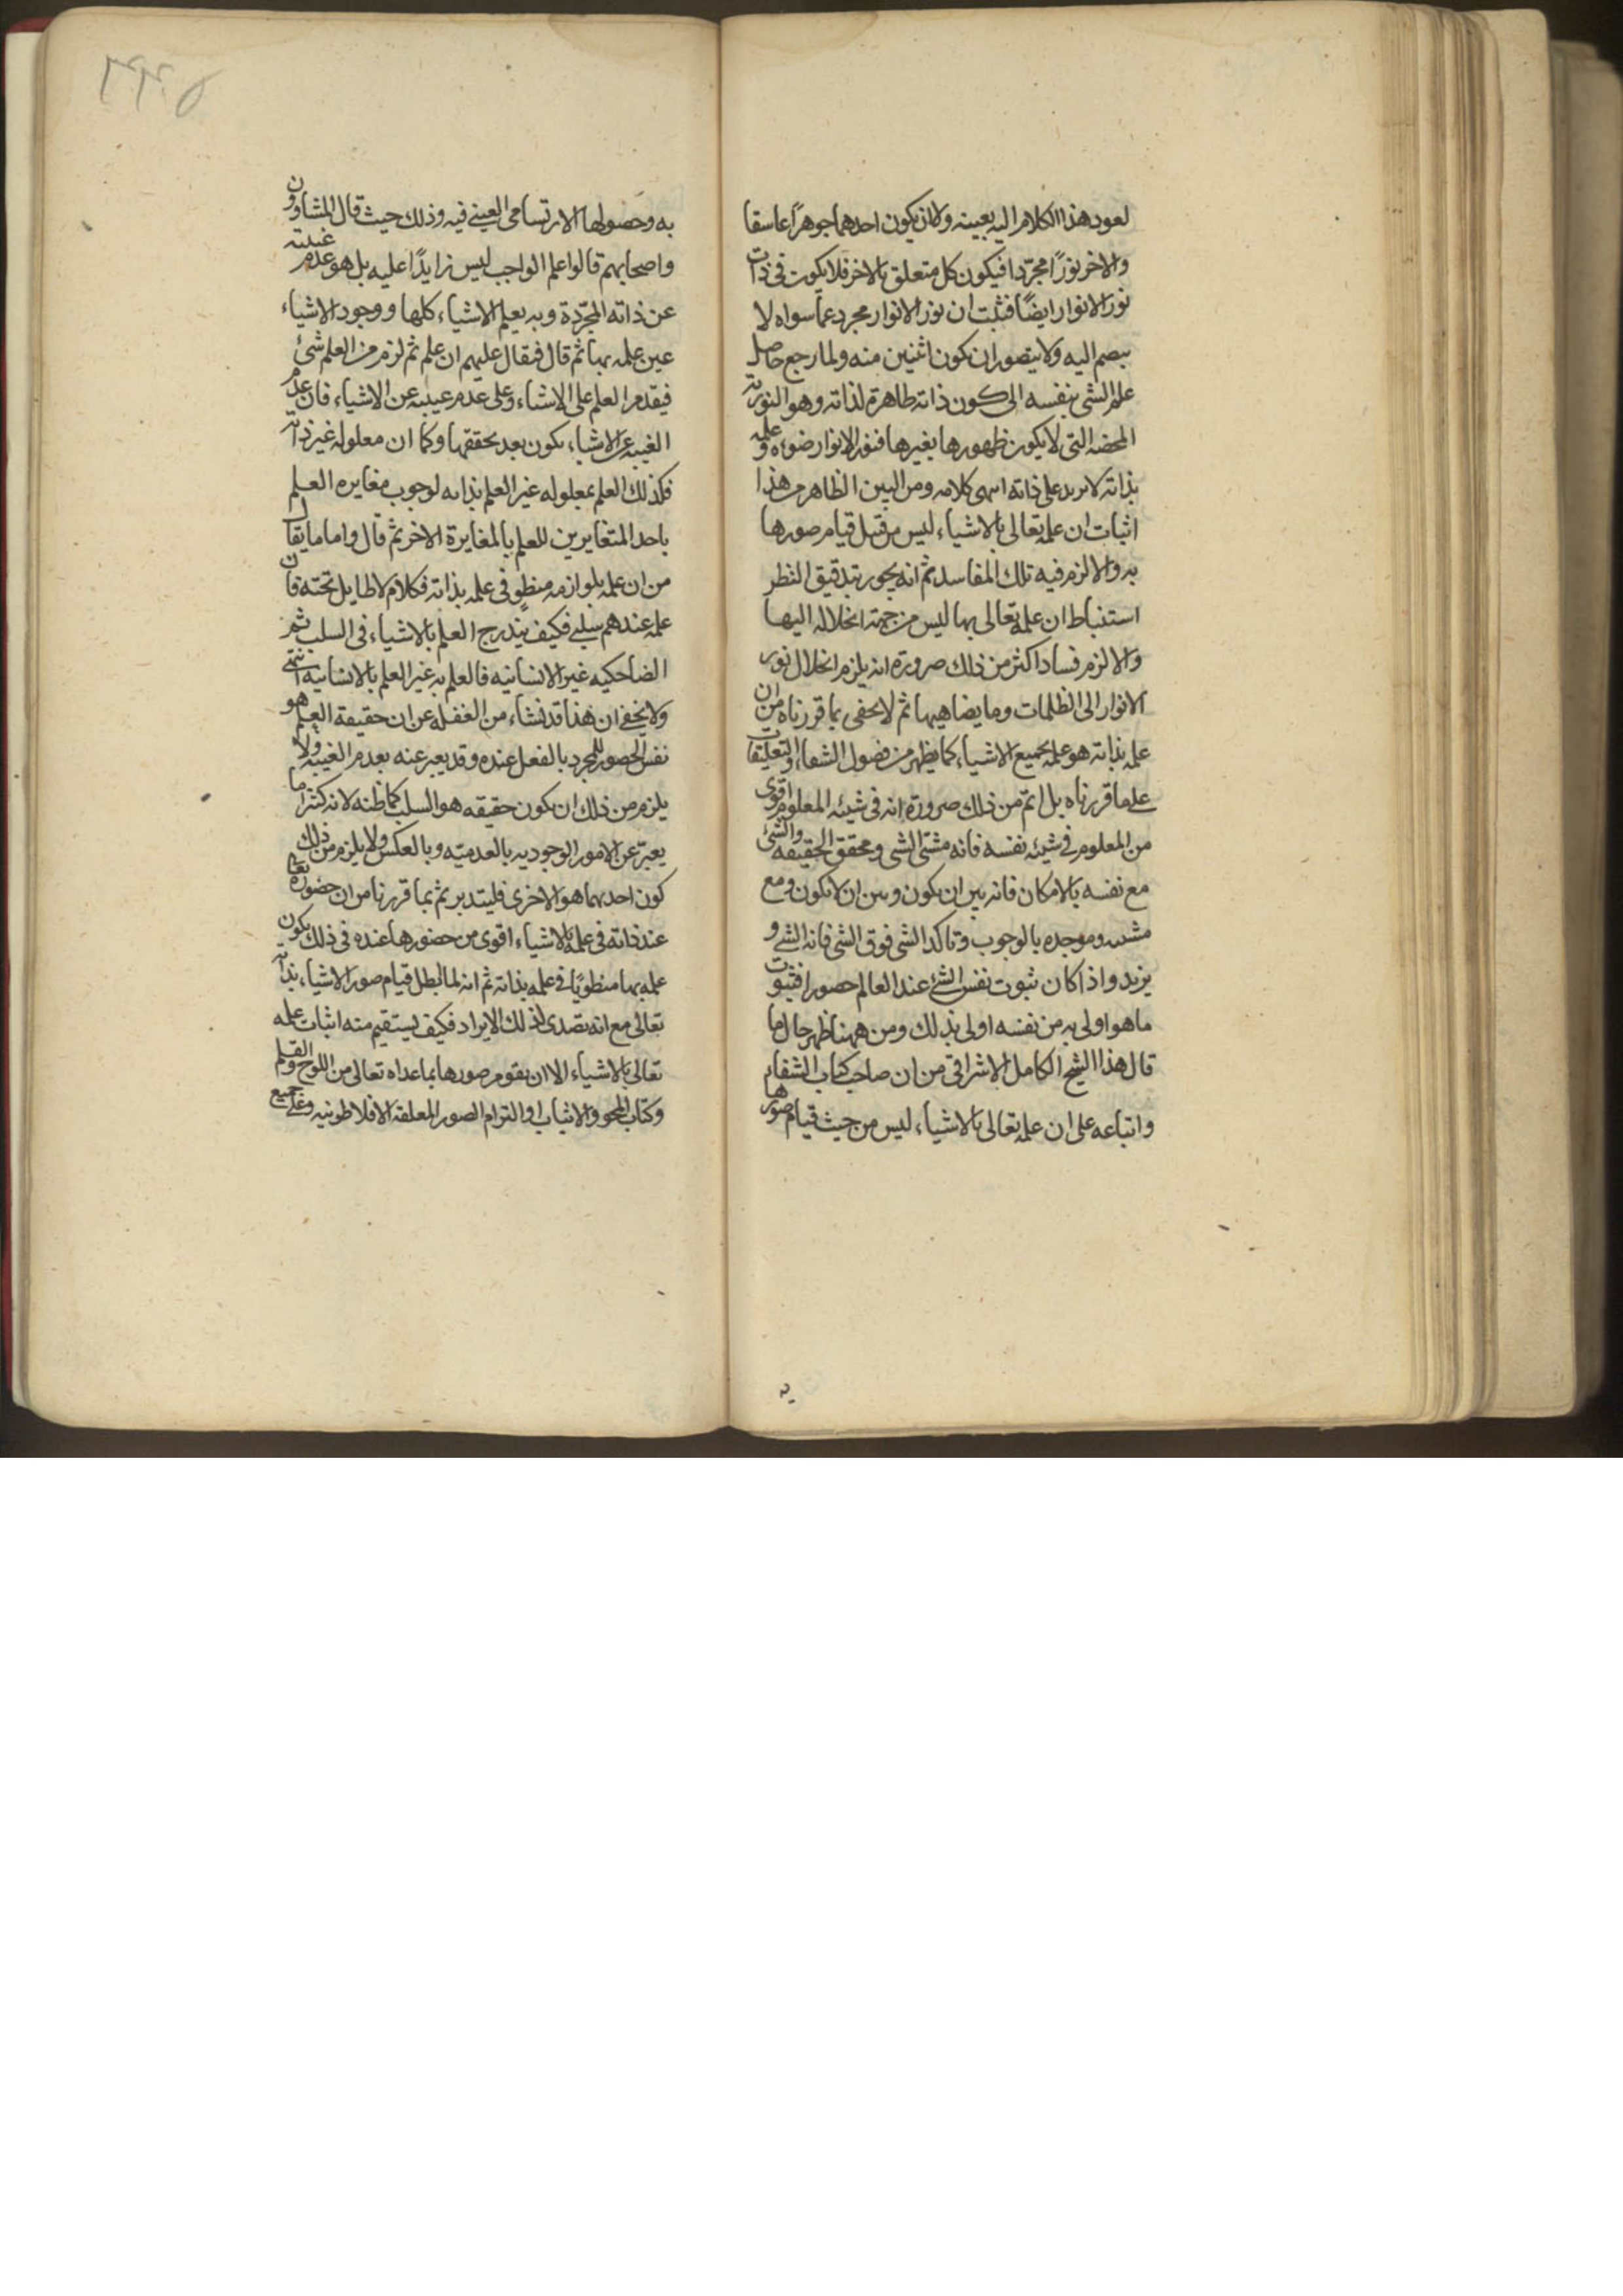 لعود هذا الكلام اليه بعينه ولان يكون احدهما جوهرا غاسقا
والاخر نورا مجردا فيكون كل متعلق بالاخر فلا يكون فى ذات
نور الانوار ايضا فثبت ان نور الانوار مجرد عما سواه لا
ينضم اليه ولا يتصور ان يكون اثنين منه ولما رجع حاصل
علم الشى بنفسه الى كون ذاته ظاهرة لذاته وهو النورية
المحضه التى لا يكون ظهورها بغيرها فنور الانوار ضوءه وعلمه
بذاته لا يزيد على ذاته انتهى كلامه ومن البين الظاهر من هذا
اثبات ان علمه تعالى بالاشياء ليس من قبل قيام صورها
به والا لزم فيه تلك المفاسد ثم انه يجوز بتدقيق النظر
استنباط ان علمه تعالى بها ليس من جهة انحلاله اليها
والا لزم فسادا اكثر من ذلك ضرورة انه يلزم انحلال نور
الانوار الى الظلمات وما يضاهيها ثم لا يخفى بما قررناه من ان
علمه بذاته هو علمه بجميع الاشياء كما يظهر من فصول الشفاء والتعليقات
على ما قررناه بل اتم من ذلك ضرورة انه فى شيئيه المعلوم اقوى
من المعلوم فى شيئيه نفسه فانه مشئ الشى ومحقق الحقيقه والشئ
مع نفسه بالامكان فانه بين ان يكون وبين ان لا يكون ومع
مشيئه وموجده بالوجوب وتاكد الشى فوق الشى فانه الشى و
يزيد واذا كان ثبوت نفس الشئ عند العالم حضورا فثبوت
ما هو اولى به من نفسه اولى بذلك ومن ههنا ظهر حال ما
قال هذا الشيخ الكامل الاشراقى من ان صاحب كتاب الشفاء
واتباعه على ان علمه تعالى بالاشياء ليس من حيث قيام صورها
به
به وحصولها الارتسامى العينى فيه وذلك حيث قال المشاؤون
واصحابهم قالوا علم الواجب ليس زايدا عليه بل هو عدم غيبته
عن ذاته المجردة وبه يعلم الاشياء كلها ووجود الاشياء
عين علمه بها ثم قال فيقال عليهم ان علم ثم لزم من العلم شئ
فيقدم العلم على الاشياء وعلى عدم غيبته عن الاشياء فان عدم
الغيبه عن الاشياء يكون بعد تحققها وكما ان معلوله غير ذاته
فكذلك العلم بمعلوله غير العلم بذاته لوجوب مغايره العلم
باحد المتغايرين للعلم بالمغايرة الاخر ثم قال واما ما يقال
من ان علمه بلوازمه منطو فى علمه بذاته فكلام لا طايل تحته فان
علمه عندهم سلبى فكيف يندرج العلم بالاشياء فى السلب ثم
الضاحكيه غير الانسانيه فالعلم به غير العلم بالانسانيه انتهى
ولا يخفى ان هذا قد نشاء من الغفله عن ان حقيقة العلم هو
نفس الحضور للمجرد بالفعل عنده وقد يعبر عنه بعدم الغيبه ولا
يلزم من ذلك ان يكون حقيقه هو السلب كما ظنه لانه كثيرا ما
يعبر عن الامور الوجوديه بالعدميه وبالعكس ولا يلزم من ذلك
كون احدهما هو الاخرى فليتدبر ثم بما قررنا من ان حضوره تعالى
عند ذاته فى علمه بالاشياء اقوى من حضورها عنده فى ذلك يكون
علمه بها منطويا فى علمه بذاته ثم انه لما ابطل قيام صور الاشياء بذاته
تعالى مع انه تصدى لذلك الايراد فكيف يستقيم منه اثبات علمه
تعالى بالاشياء الا ان يقوم صورها بما عداه تعالى من اللوح والقلم
وكتاب المحو والاثبات او التزام الصور المعلقه الافلاطونيه وعلى جميع